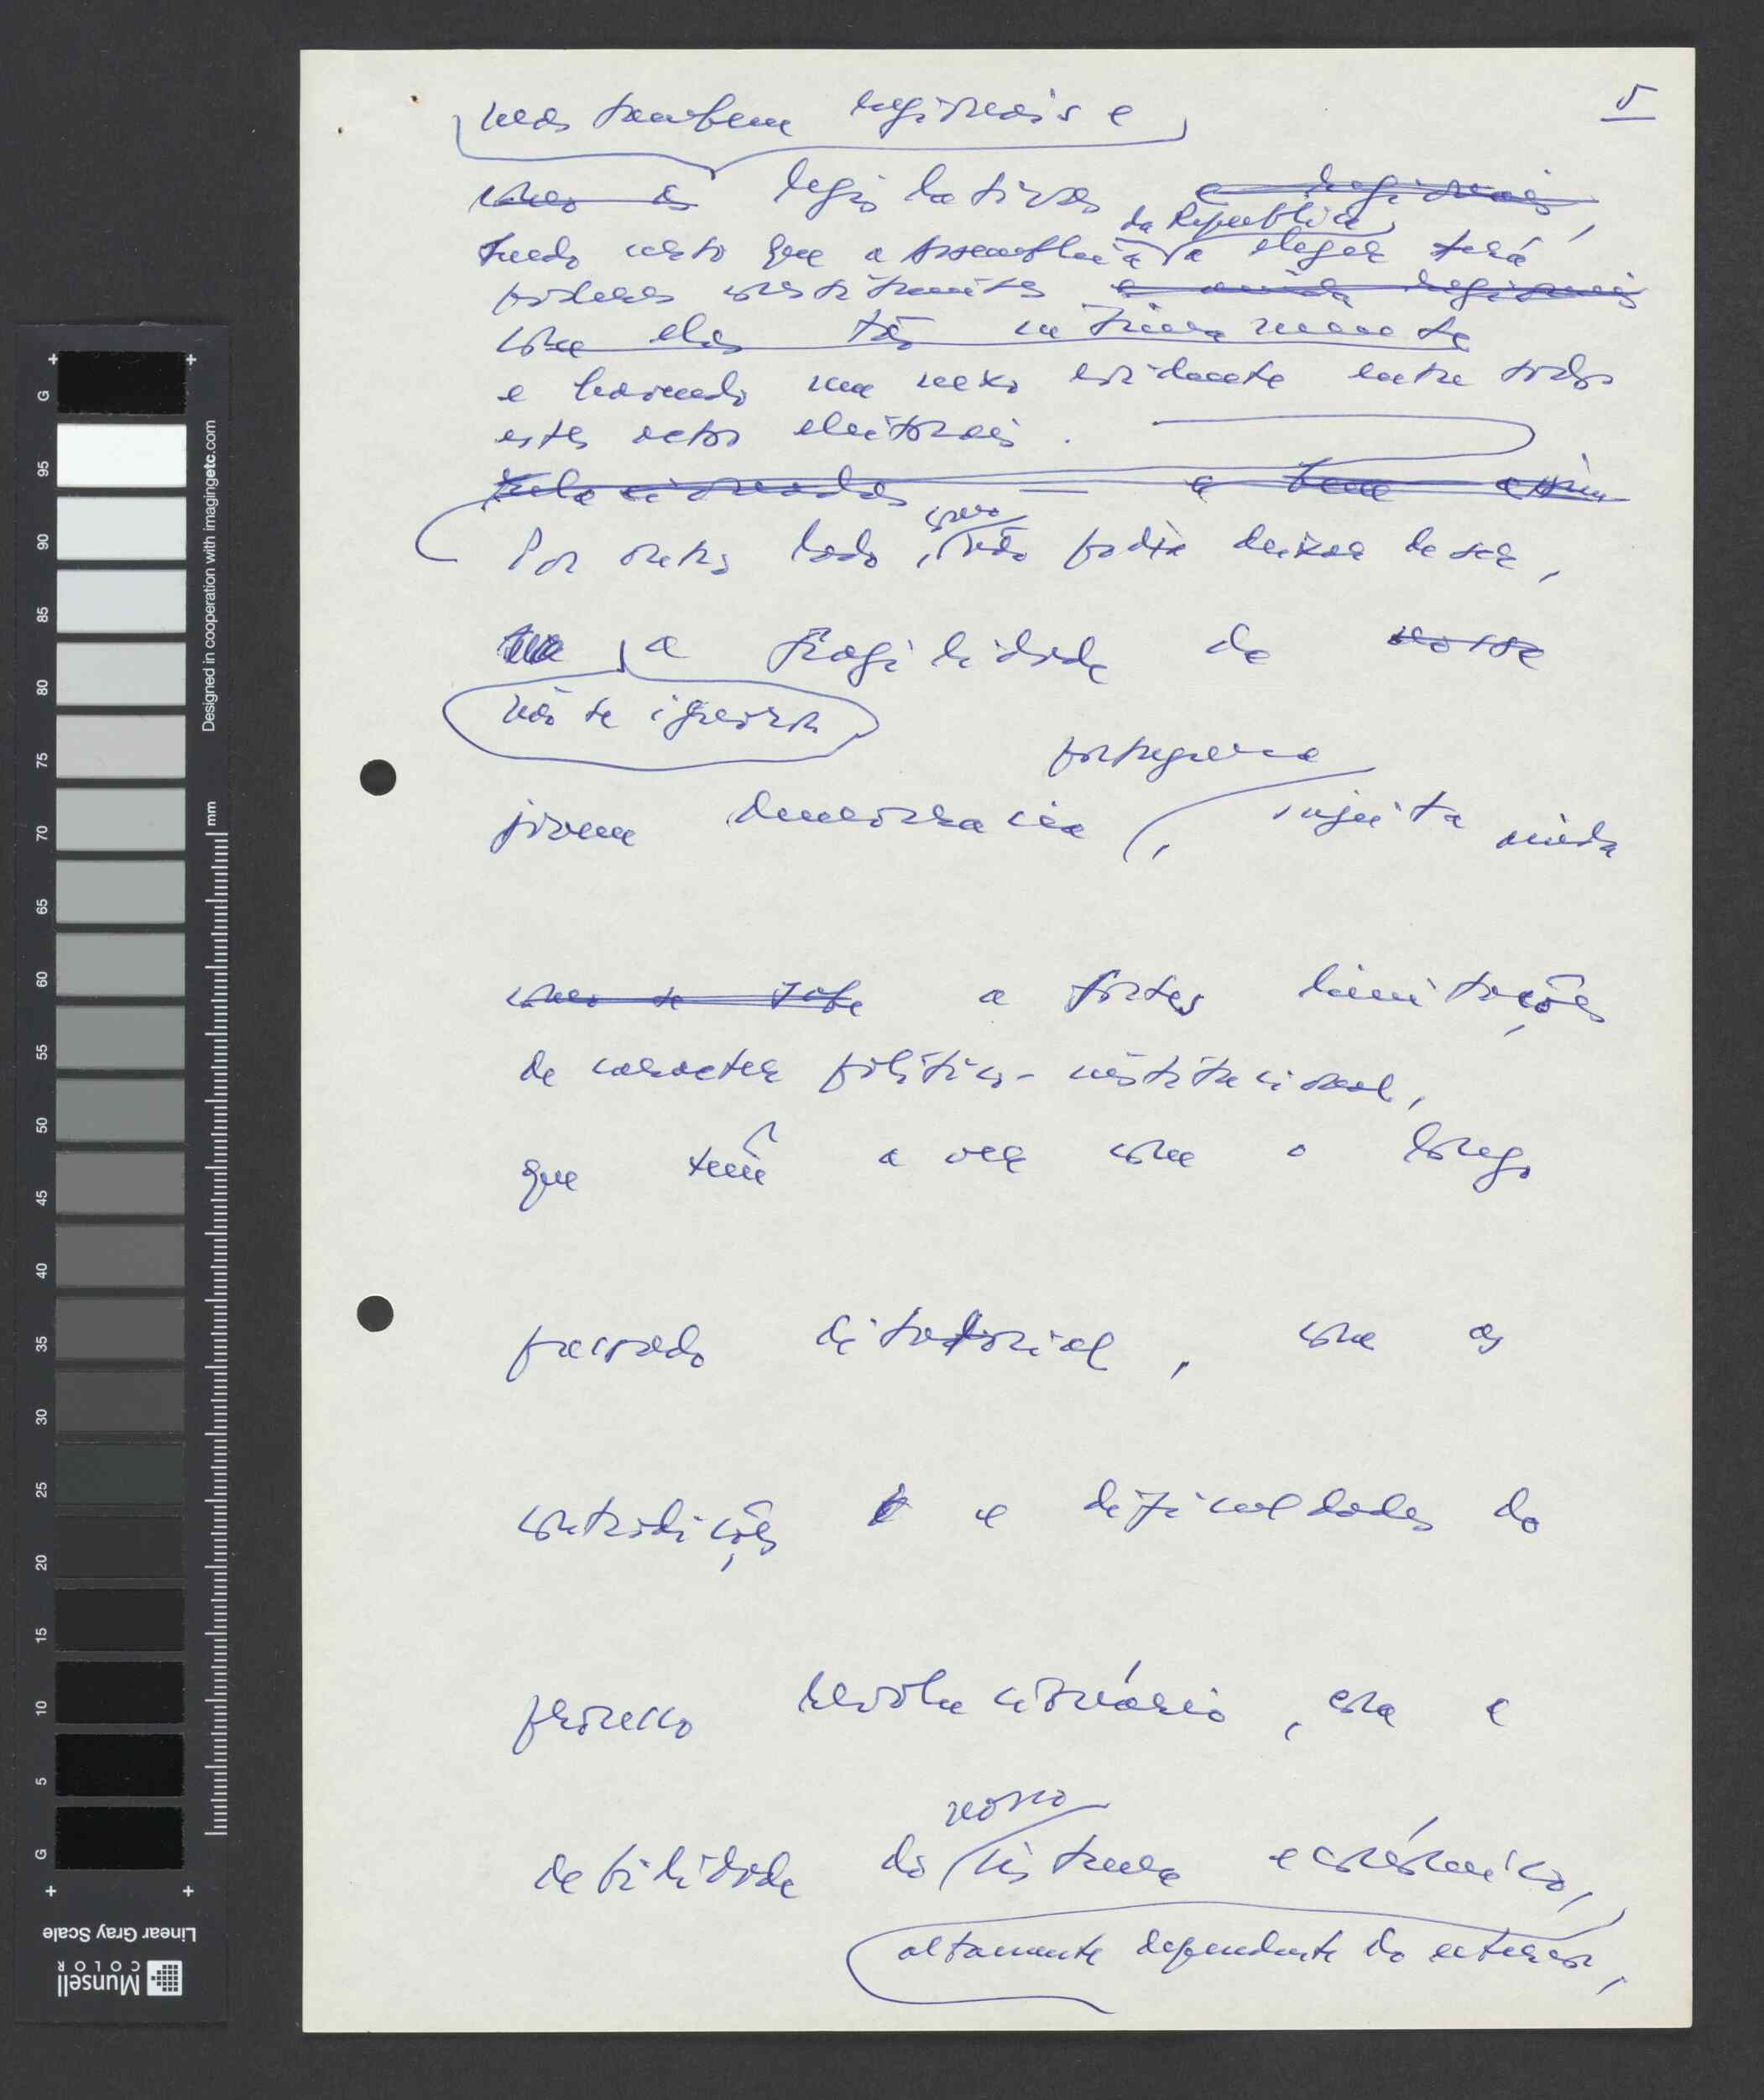 5
mas também regionais e
como as legislativas e regionais,
sendo certo que a Assembleia da República a eleger terá
poderes constituintes e ainda regionais
com elas tão intimamente
e havendo um nexo evidente entre todos
estes actos eleitorais.
relacionadas — e bem assim
Por outro lado, como não podia deixar de ser,
a fragilidade da nossa
não se ignora
portuguesa
jovem democracia, sujeita ainda
como se sabe a fortes limitações
de caracter político-institucional,
que têm a ver com o longo
passado ditatorial, com as
contradições e dificuldades do
processo revolucionário, com a
nosso
debilidade do sistema económico,
altamente dependente do exterior,
Designed in cooperation with imagingetc.com
mm
G 95 90 85 80 75 70 65 60 55 50 45 40 35 30 25 20 15 10 5 G
Linear Gray Scale
Munsell
COLOR